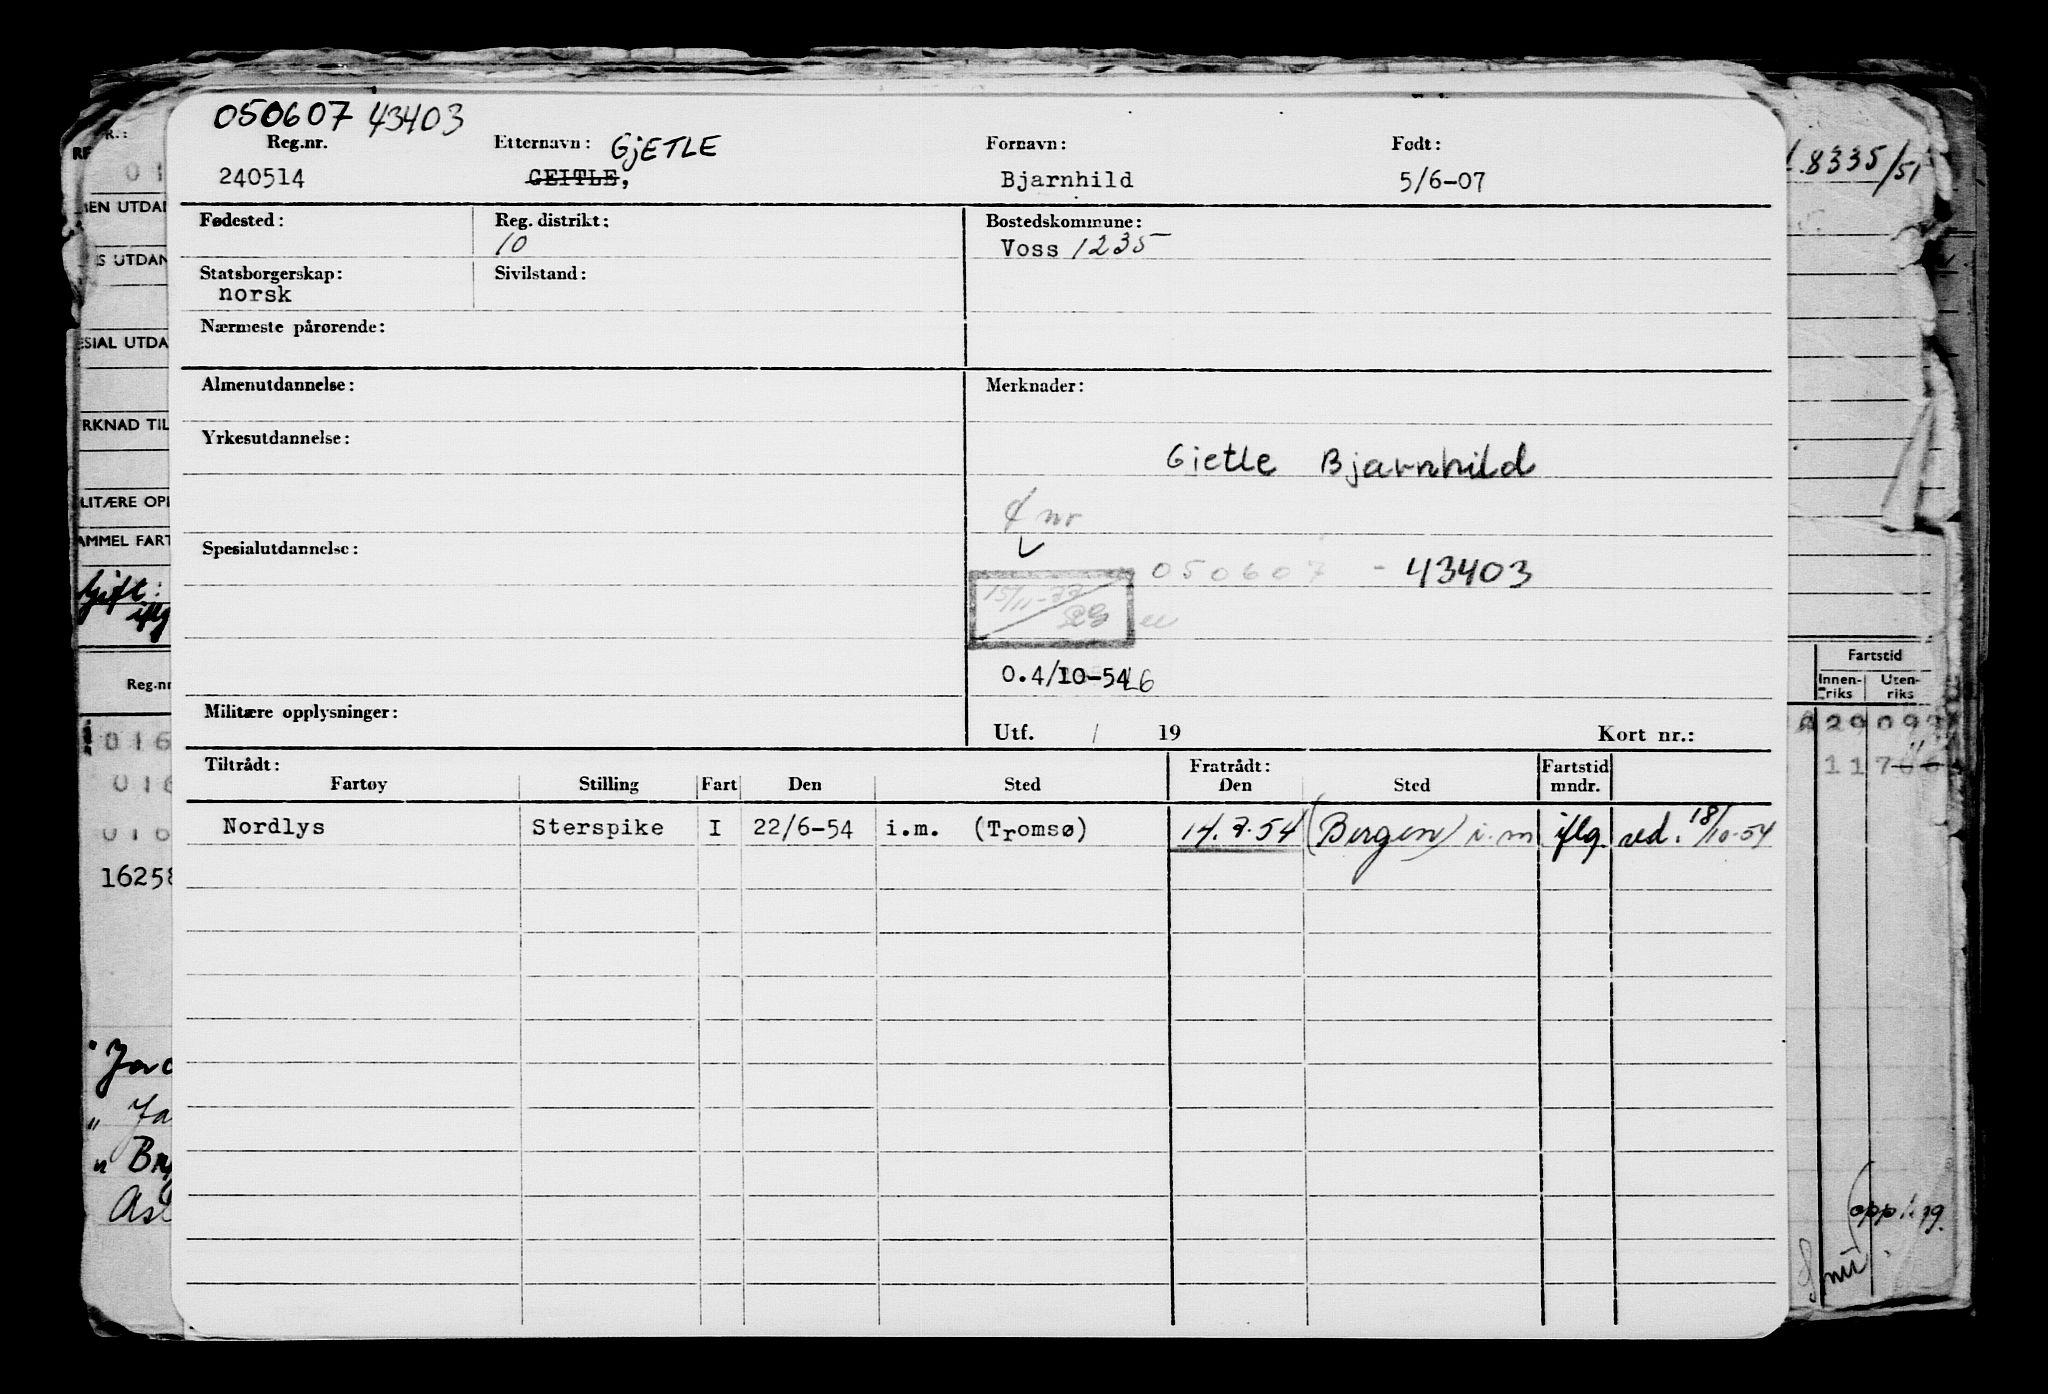 050607 43403
Reg.nr. Etternavn: GjETLE Fornavn: Født:
240514 GEITLE, Bjarnhild 5/6-07
Fødested: Reg. distrikt: Bostedskommune:
10 Voss 1235
Statsborgerskap: Sivilstand:
norsk
Nærmeste pårørende:
Almenutdannelse: Merknader:
Yrkesutdannelse:
Gjetle Bjarnhild
nr
Spesialutdannelse:
050607 - 43403
15/11-77
0.4/10-54
Militære opplysninger:
Utf. / 19 Kort nr.:
Tiltrådt: Fratrådt: Fartstid
Fartøy Stilling Fart Den Sted Den Sted mndr.
Nordlys Sterspike I 22/6-54 i.m. (Tromsø) 14.7.54 (Bergen) i.m iflg. ved. 18/10-54
R.:
RE
01
MEN UTDAN
IS UTDAN
ESIAL UTDA
RKNAD TIL
LITÆRE OPP
AMMEL FART
Gift:
iflg
Reg.nr
016
016
016
16258
" Ja
" Br
Ast
8335/51
Fartstid
Innen-riks Uten-riks
(oppl. 79.